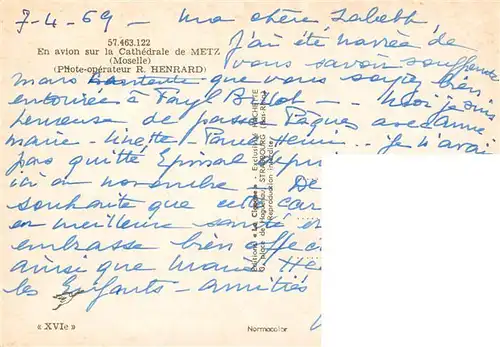 7-4-69 - Ma chère
57.463.122
En avion sur la Cathédrale de METZ
(Moselle)
(Photo-opérateur R. HENRARD)
J'ai été navrée de
vous savoir souffrante
mais que vous soyez bien
entourée à Fayl Billot - - Moi je suis
heureuse de passer Pâques avec Anne
Marie - Ginette - Paul Henri... je n'avai
pas quitté Epinal depui
ici en novembre - De
souhaite que cette car
en meilleure santé et
embrasse bien affec
ainsi que Marie
les Enfants - amitiés
Editions « La Cigogne » - Exclusivité HACHETTE
place de Haguenau STRASBOURG
Reproduction interdite
« XVIe »
Normacolor